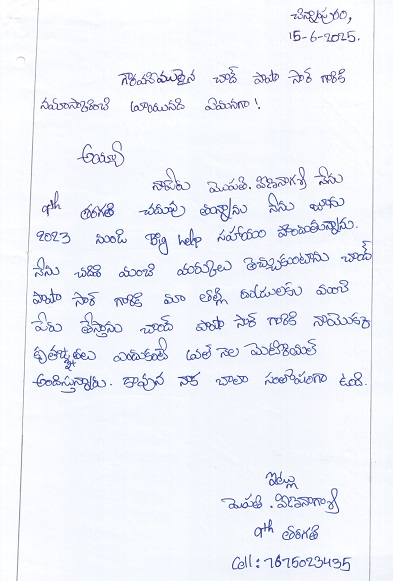 చిన్నాపురం,
15-6-2025.
గౌరవనీయులైన చాంద్ పాషా సార్ గారికి
నమస్కరించి వ్రాయునది ఏమనగా!
అయ్యా
నాపేరు మొపతి. వీణానాగశ్రీ నేను
9th తరగతి చదువు తున్నాను నేను జూను
2023 నుండి help సహాయం పొందుతున్నాను.
నేను చదివి మంచి మార్కులు తెచ్చుకుంటాను చాంద్
పాషా సార్ గారికి మా తల్లి దండ్రులకు మంచి
పేరు తెస్తాను చాంద్ పాషా సార్ గారికి నాయొక్క
కృతజ్ఞతలు ఎందుకంటే ప్రతి నెల మెటీరియల్
అందిస్తున్నారు. కావున నాకు చాలా సంతోషంగా ఉంది.
ఇట్లు
మొపతి. వీణానాగశ్రీ
9th తరగతి
Cell: 7675023435